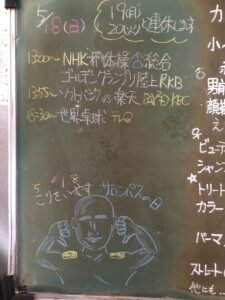 5/18(日)
19(月)
20(火)と連休します
13:00〜NHK 総合
ゴールデングランプリ陸上 RKB
13:55〜ソフトバンク VS 楽天 KBC
18:30〜世界卓球 テレQ
5 18
こりをいやす サロンパスの日
カ
小
男
顔
ビュー
シャン
トリート
カラー
パーマ
ストレート
他にも…